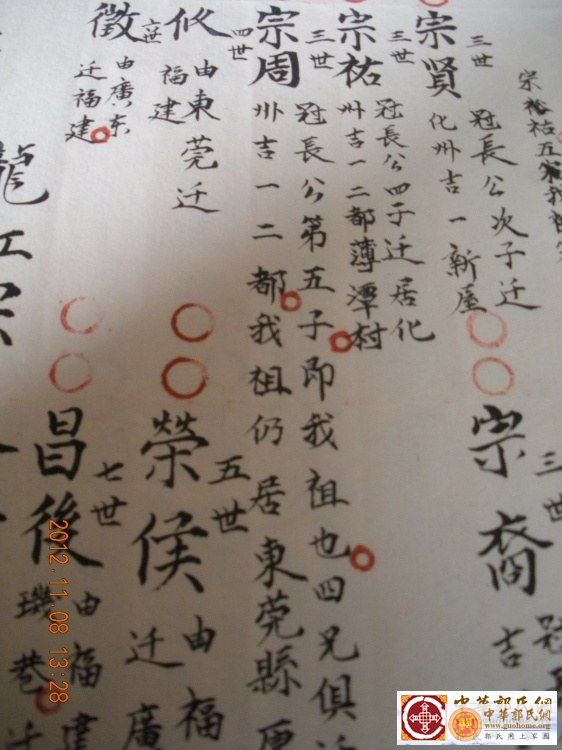 三世
宗賢
冠長公次子迁
化州吉一新屋
三世
宗裔
吉
三世
宗祐
冠長公四子迁居化
州吉一二都薄潭村
三世
宗周
冠長公第五子即我祖也四兄俱
州吉一二都我祖仍居東莞縣
四世
攸
由東莞迁
福建
五世
榮侯
由福
迁廣
六世
徵
由廣东
迁福建
七世
昌後
由福建
璣巷迁
龍江宗
2012.11.08 13:28
中華郭氏網
中華郭氏網
www.guohome.org
郭氏網上家園